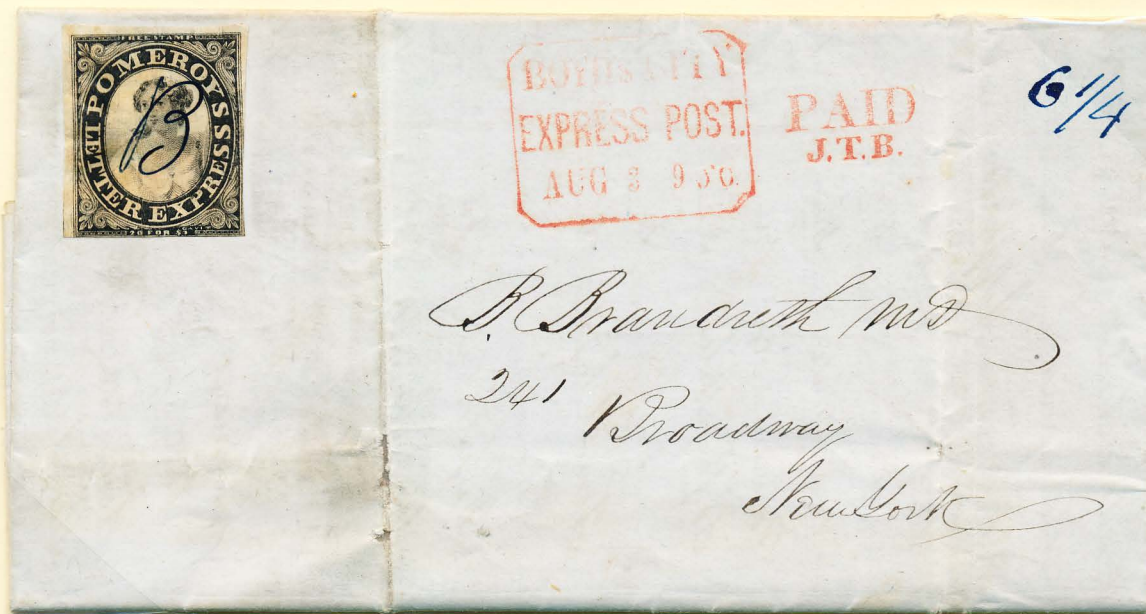 FREE STAMP
POMEROYS LETTER EXPRESS
B
20 FOR $1
BOYD'S CITY
EXPRESS POST.
AUG
PAID
J.T.B.
6 1/4
B. Brandreth MD
241
Broadway
New York